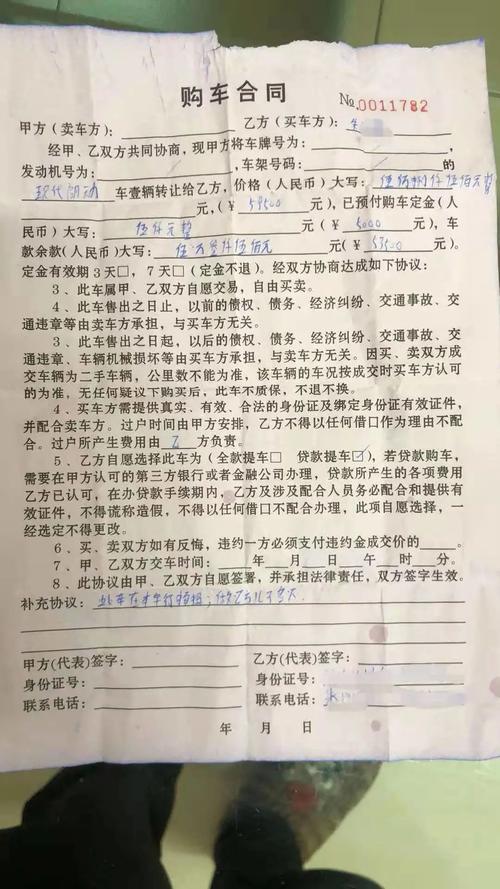 购车合同
№0011782
甲方（卖车方）： 乙方（买车方）：
经甲、乙双方共同协商，现甲方将车牌号为：
发动机号为： 车架号码： 的
现代朗动 车壹辆转让给乙方，价格（人民币）大写：
元，（￥ 58500 元），已预付购车定金（人
民币）大写： 伍仟元整 元（￥ 5000 元），车
款余款（人民币）大写： 伍万叁仟伍佰元 元（￥ 53500 元）。
定金有效期3天□，7天□（定金不退）。经双方协商达成如下协议：
3、此车属甲、乙双方自愿交易，自由买卖。
4、此车售出之日止，以前的债权、债务、经济纠纷、交通事故、交
通违章等由卖车方承担，与买车方无关。
3、此车售出之日起，以后的债权、债务、经济纠纷、交通事故、交
通违章、车辆机械损坏等由买车方承担，与卖车方无关。因买、卖双方成
交车辆为二手车辆，公里数不能为准，该车辆的车况按成交时买车方认可
的为准，无任何疑议下购买后，此车不质保，不退不换。
4、买车方需提供真实、有效、合法的身份证及绑定身份证有效证件，
并配合卖车方。过户时间由甲方安排，乙方不得以任何借口作为理由不配
合。过户所产生费用由 乙 方负责。
5、乙方自愿选择此车为（全款提车□ 贷款提车☑），若贷款购车，
需要在甲方认可的第三方银行或者金融公司办理，贷款所产生的各项费用
乙方已认可，在办贷款手续期内，乙方及涉及配合人员务必配合和提供有
效证件，不得谎称造假，不得以任何借口不配合办理，此项自愿选择，一
经选定不得更改。
6、买、卖双方如有反悔，违约一方必须支付违约金成交价的 。
7、甲、乙双方交车时间： 年 月 日 午 时 分。
8、此协议由甲、乙双方自愿签署，并承担法律责任，双方签字生效。
补充协议： 此车在本车行
甲方（代表）签字： 乙方（代表）签字：
身份证号： 身份证号：
联系电话： 联系电话：
年 月 日